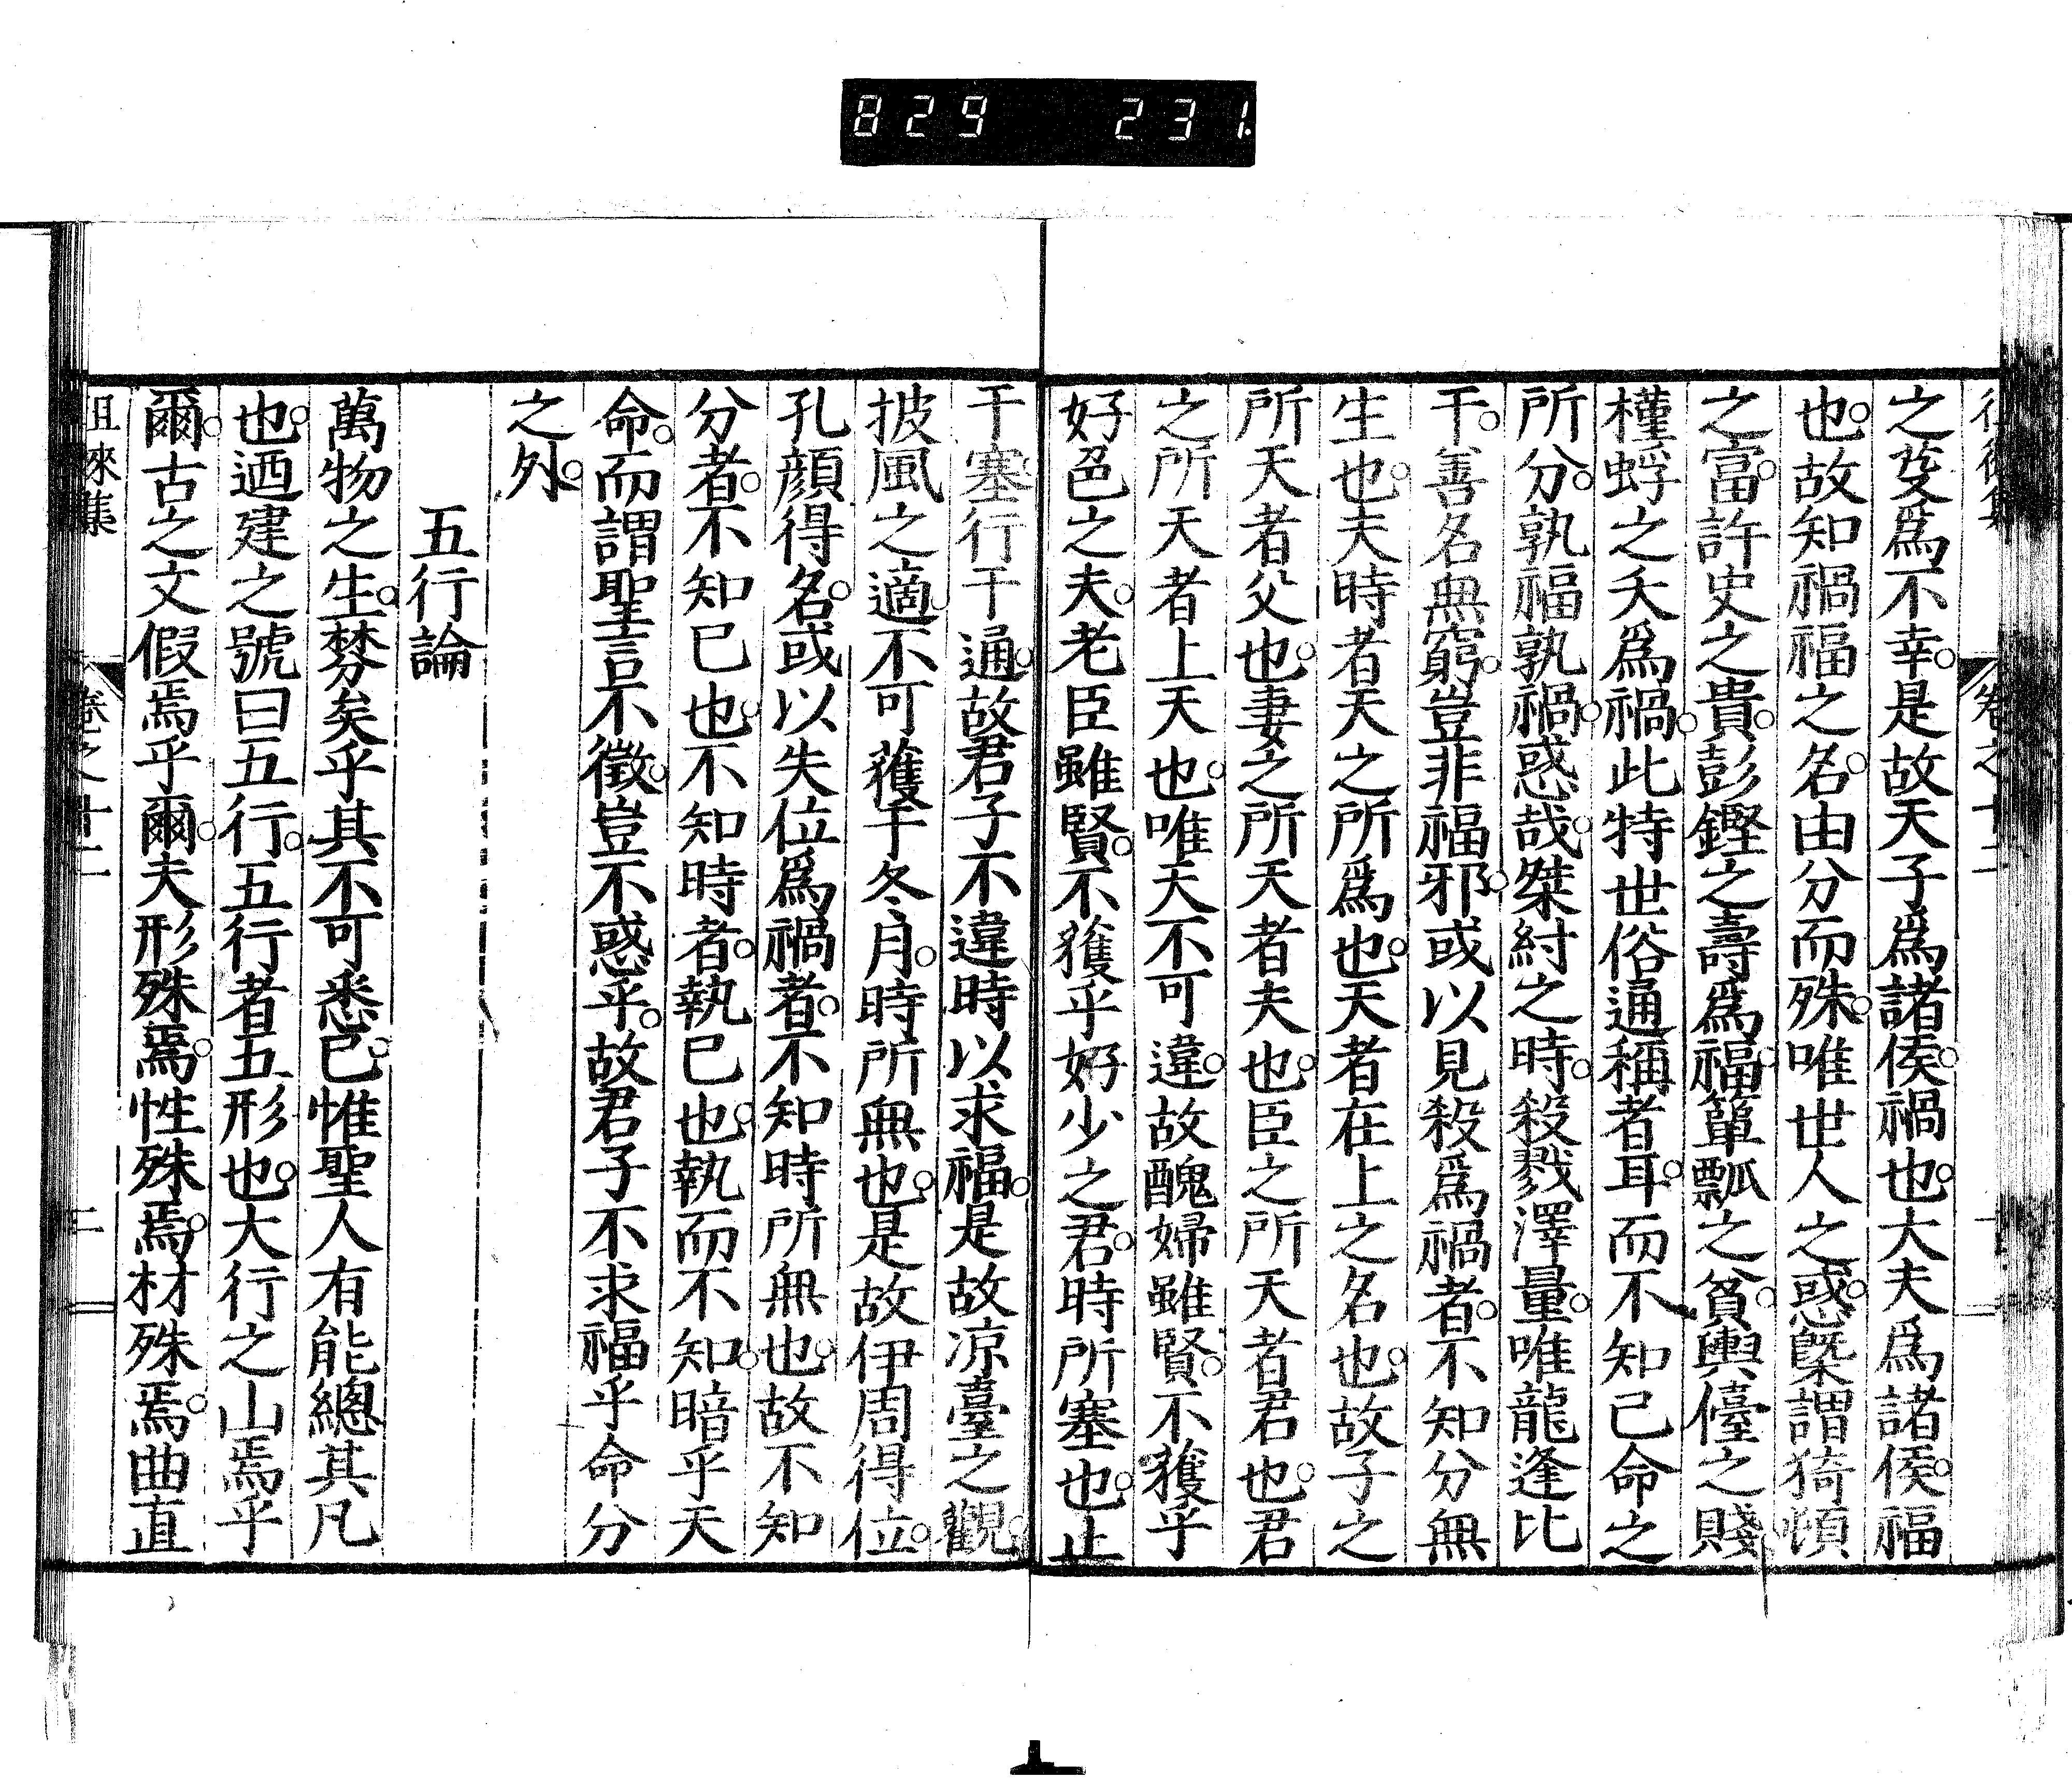 829 231
之爱爲不幸。是故天子爲諸侯。禍也。大夫爲諸侯。福
也。故知禍福之名。由分而殊。唯世人之惑。槩謂猗頓
之富。許史之貴。彭鏗之壽爲福。簞瓢之貧。輿儓之賤
槿蜉之夭爲禍。此特世俗通稱者耳。而不知己命之
所分。孰福孰禍。惑哉。桀紂之時。殺戮澤量。唯龍逢比
干。善名無窮。豈非福邪。或以見殺爲禍者。不知分無
生也。夫時者天之所爲也。天者在上之名也。故子之
所天者父也。妻之所天者夫也。臣之所天者君也。君
之所天者上天也。唯天不可違。故醜婦雖賢。不獲乎
好色之夫。老臣雖賢。不獲乎好少之君。時所塞也。止
于塞行于通。故君子不違時以求福。是故凉臺之觀。
披風之適。不可獲于冬月。時所無也。是故伊周得位。
孔顔得名。或以失位爲禍者。不知時所無也。故不知
分者。不知已也。不知時者。執已也。執而不知。暗乎天
命。而謂聖言不徵。豈不惑乎。故君子不求福乎命分
之外。
五行論
萬物之生。棼矣乎其不可悉已。惟聖人有能總其凡
也。迺建之號曰五行。五行者五形也。大行之山焉乎
爾。古之文假焉乎爾。夫形殊焉。性殊焉。材殊焉。曲直
徂徠集 卷之十二 二